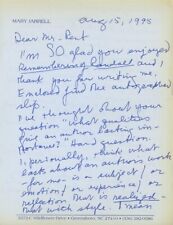 MARY JARRELL
Aug 15, 1998
Dear Mr. Rent
I'm SO glad you enjoyed
Remembering Randall and I
thank you for writing me.
Enclosed find the autographed
slip.
I've thought about your
question "what qualities
give an author lasting im-
portance? Hard question.
I, personally, think what
lasts about an author's work
for me is a subject / or
emotion / or experience / or
reflection that is realized
that with style I mean
Wildflower Drive • Greensboro, NC 27410 •